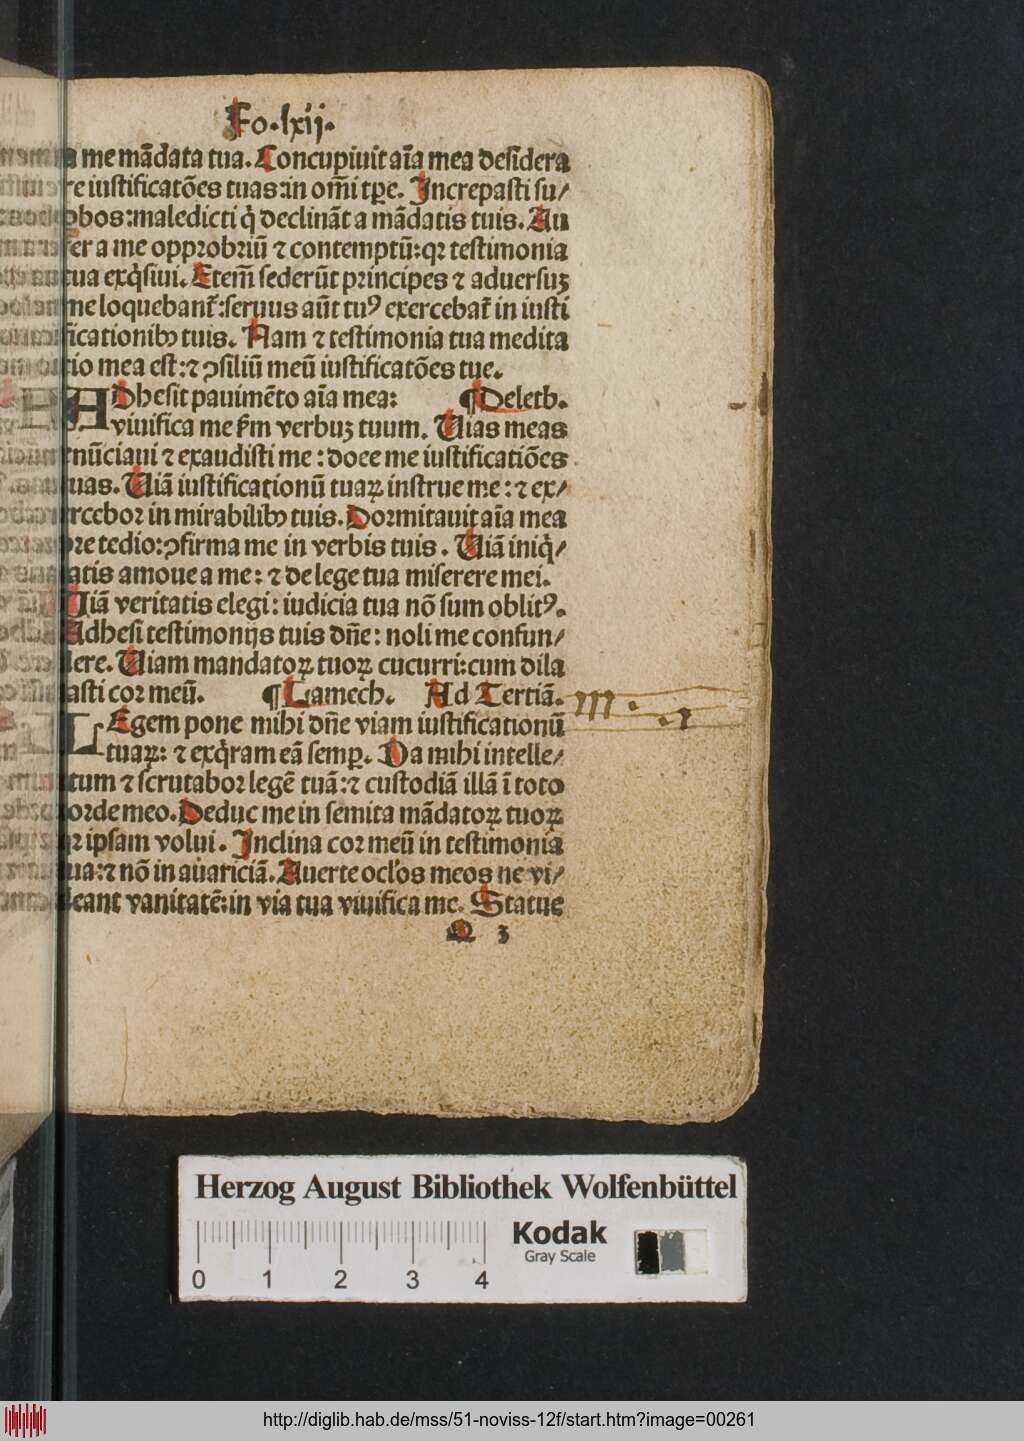 Fo.lxij.
a me mādata tua. Concupiuit aīa mea desidera
re iustificatōes tuas:in om̄i tꝑe. Increpasti su/
ꝑbos:maledicti q̇ declināt a mādatis tuis. Au
fer a me opprobriū ⁊ contemptū:qꝛ testimonia
tua exq̇siui. Etem̄ sederūt principes ⁊ aduersuꝫ
me loquebant̄:seruus aūt tuꝰ exercebat̄ in iusti
ficationibꝫ tuis. Nam ⁊ testimonia tua medita
tio mea est:⁊ ꝯsiliū meū iustificatōes tue.
ADhesit pauimēto aīa mea: ¶Deleth.
viuifica me ẜm verbuꝫ tuum. Uias meas
enūciaui ⁊ exaudisti me:doce me iustificatiōes
tuas. Uiā iustificationū tuaꝝ instrue me:⁊ ex/
ercebor in mirabilibꝫ tuis. Dormitauit aīa mea
pre tedio:ꝯfirma me in verbis tuis. Uiā iniq̇/
tatis amoue a me:⁊ de lege tua miserere mei.
Uiā veritatis elegi:iudicia tua nō sum oblitꝰ.
Adhesi testimonijs tuis dn̄e:noli me confun/
dere. Uiam mandatoꝝ tuoꝝ cucurri:cum dila
tasti cor meū. ¶Lamech. Ad Tertiā.
LEgem pone mihi dn̄e viam iustificationū
tuaꝝ:⁊ exq̇ram eā semꝑ. Da mihi intelle/
ctum ⁊ scrutabor legē tuā:⁊ custodiā illā ī toto
corde meo. Deduc me in semita mādatoꝝ tuoꝝ
qꝛ ipsam volui. Inclina cor meū in testimonia
tua:⁊ nō in auariciā. Auerte ocl'os meos ne vi/
deant vanitatē:in via tua viuifica me. Statue
3
Herzog August Bibliothek Wolfenbüttel
Kodak
Gray Scale
0 1 2 3 4
http://diglib.hab.de/mss/51-noviss-12f/start.htm?image=00261